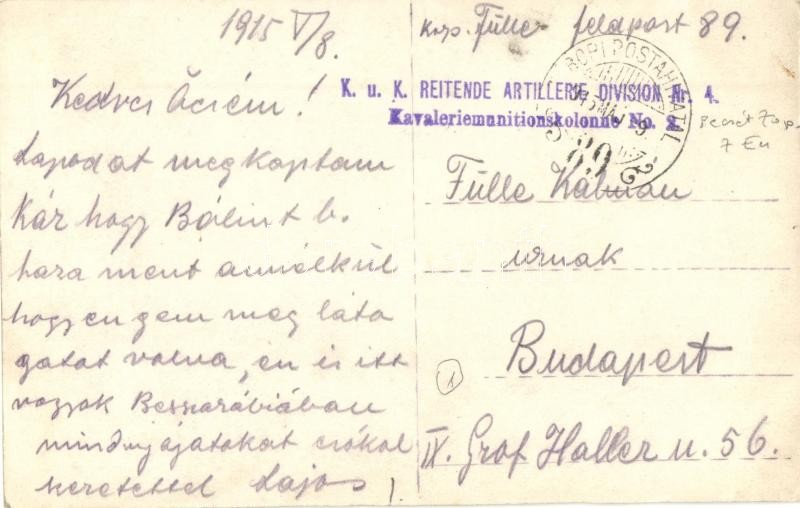 1915 V/8.
Kedves Öcsém!
Lapodat megkaptam
Kár hogy Bálint b.
haza ment annélkül
hogy engem meg láto
gatot volna, én is itt
vagyok Besszarábiában
mindnyájatokat csókol
szeretettel Lajos
Korp. Füller feldpost 89.
K. u. K. REITENDE ARTILLERIE DIVISION Nr. 4.
Kavaleriemunitionskolonne No. 2
TÁBORI POSTAHIVATAL
915 MÁJ 9
89
Fülle Kálmán
urnak
Budapest
IX. Gróf Haller u. 56.
1